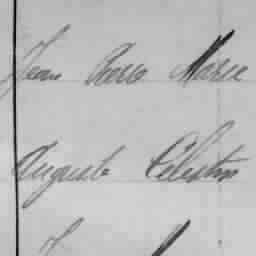 Jean Pierre Marie
Auguste Célestin